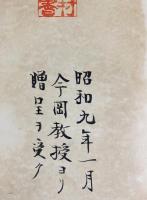 昭和九年一月
今岡教授ヨリ
贈呈ヲ受ク